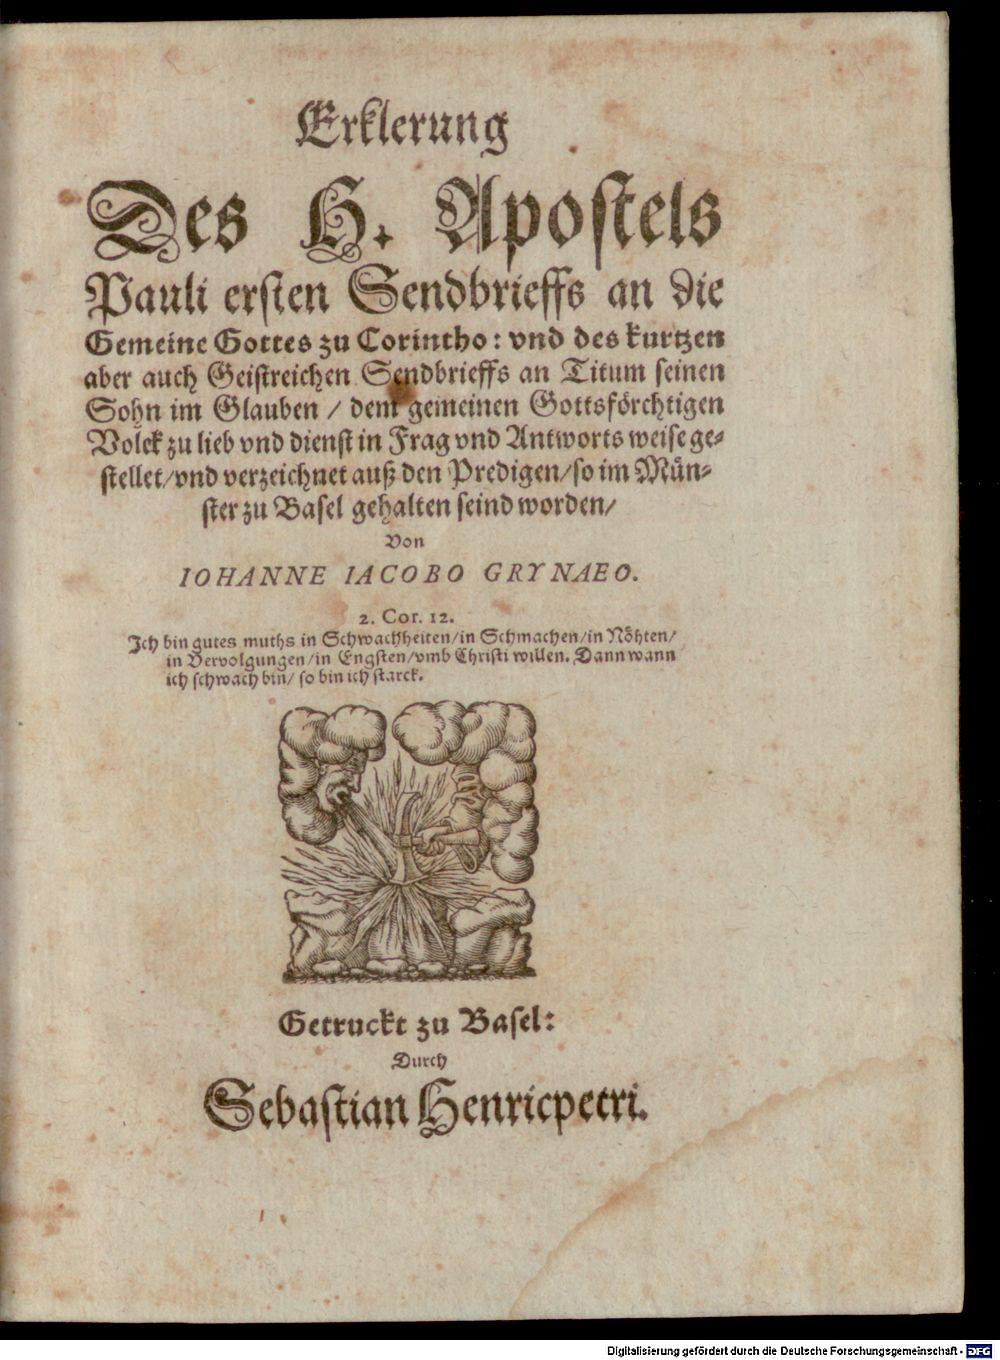 Erklerung
Des H. Apostels
Pauli ersten Sendbrieffs an die
Gemeine Gottes zu Corintho: vnd des kurtzen
aber auch Geistreichen Sendbrieffs an Titum seinen
Sohn im Glauben / dem gemeinen Gottsförchtigen
Volck zu lieb vnd dienst in Frag vnd Antworts weise ge-
stellet/vnd verzeichnet auß den Predigen/so im Mün-
ster zu Basel gehalten seind worden/
Von
IOHANNE IACOBO GRYNAEO.
2. Cor. 12.
Ich bin gutes muths in Schwachheiten/in Schmachen/in Nöhten/
in Vervolgungen/in Engsten/vmb Christi willen. Dann wann
ich schwach bin/ so bin ich starck.
Getruckt zu Basel:
Durch
Sebastian Henricpetri.
Digitalisierung gefördert durch die Deutsche Forschungsgemeinschaft - DFG